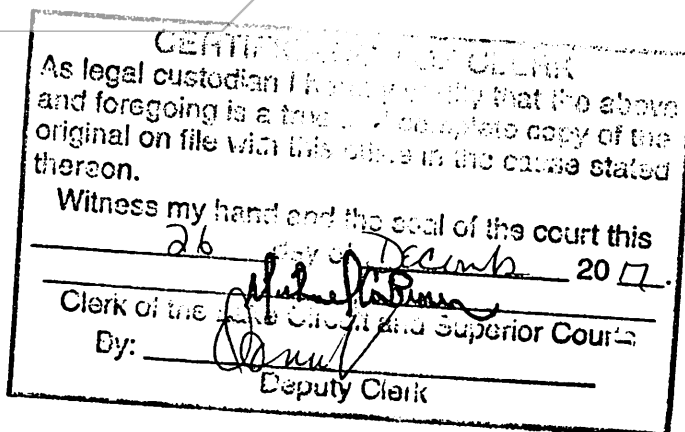 CERTIFICATION CLERK
As legal custodian I hereby certify that the above
and foregoing is a true and complete copy of the
original on file with this office in the cause stated
thereon.
Witness my hand and the seal of the court this
26 day of Decemb 20 17.
Clerk of the Lake Circuit and Superior Courts
By:
Deputy Clerk